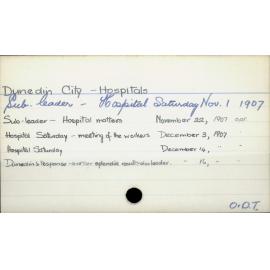 Dunedin City - Hospitals
Sub. leader - Hospital Saturday Nov. 1 1907
Sub-leader - Hospital matters November 22, 1907
Hospital Saturday - meeting of the workers December 3, 1907
Hospital Saturday December 4, "
Dunedin's response - splendid result " 14, - "
O.D.T.